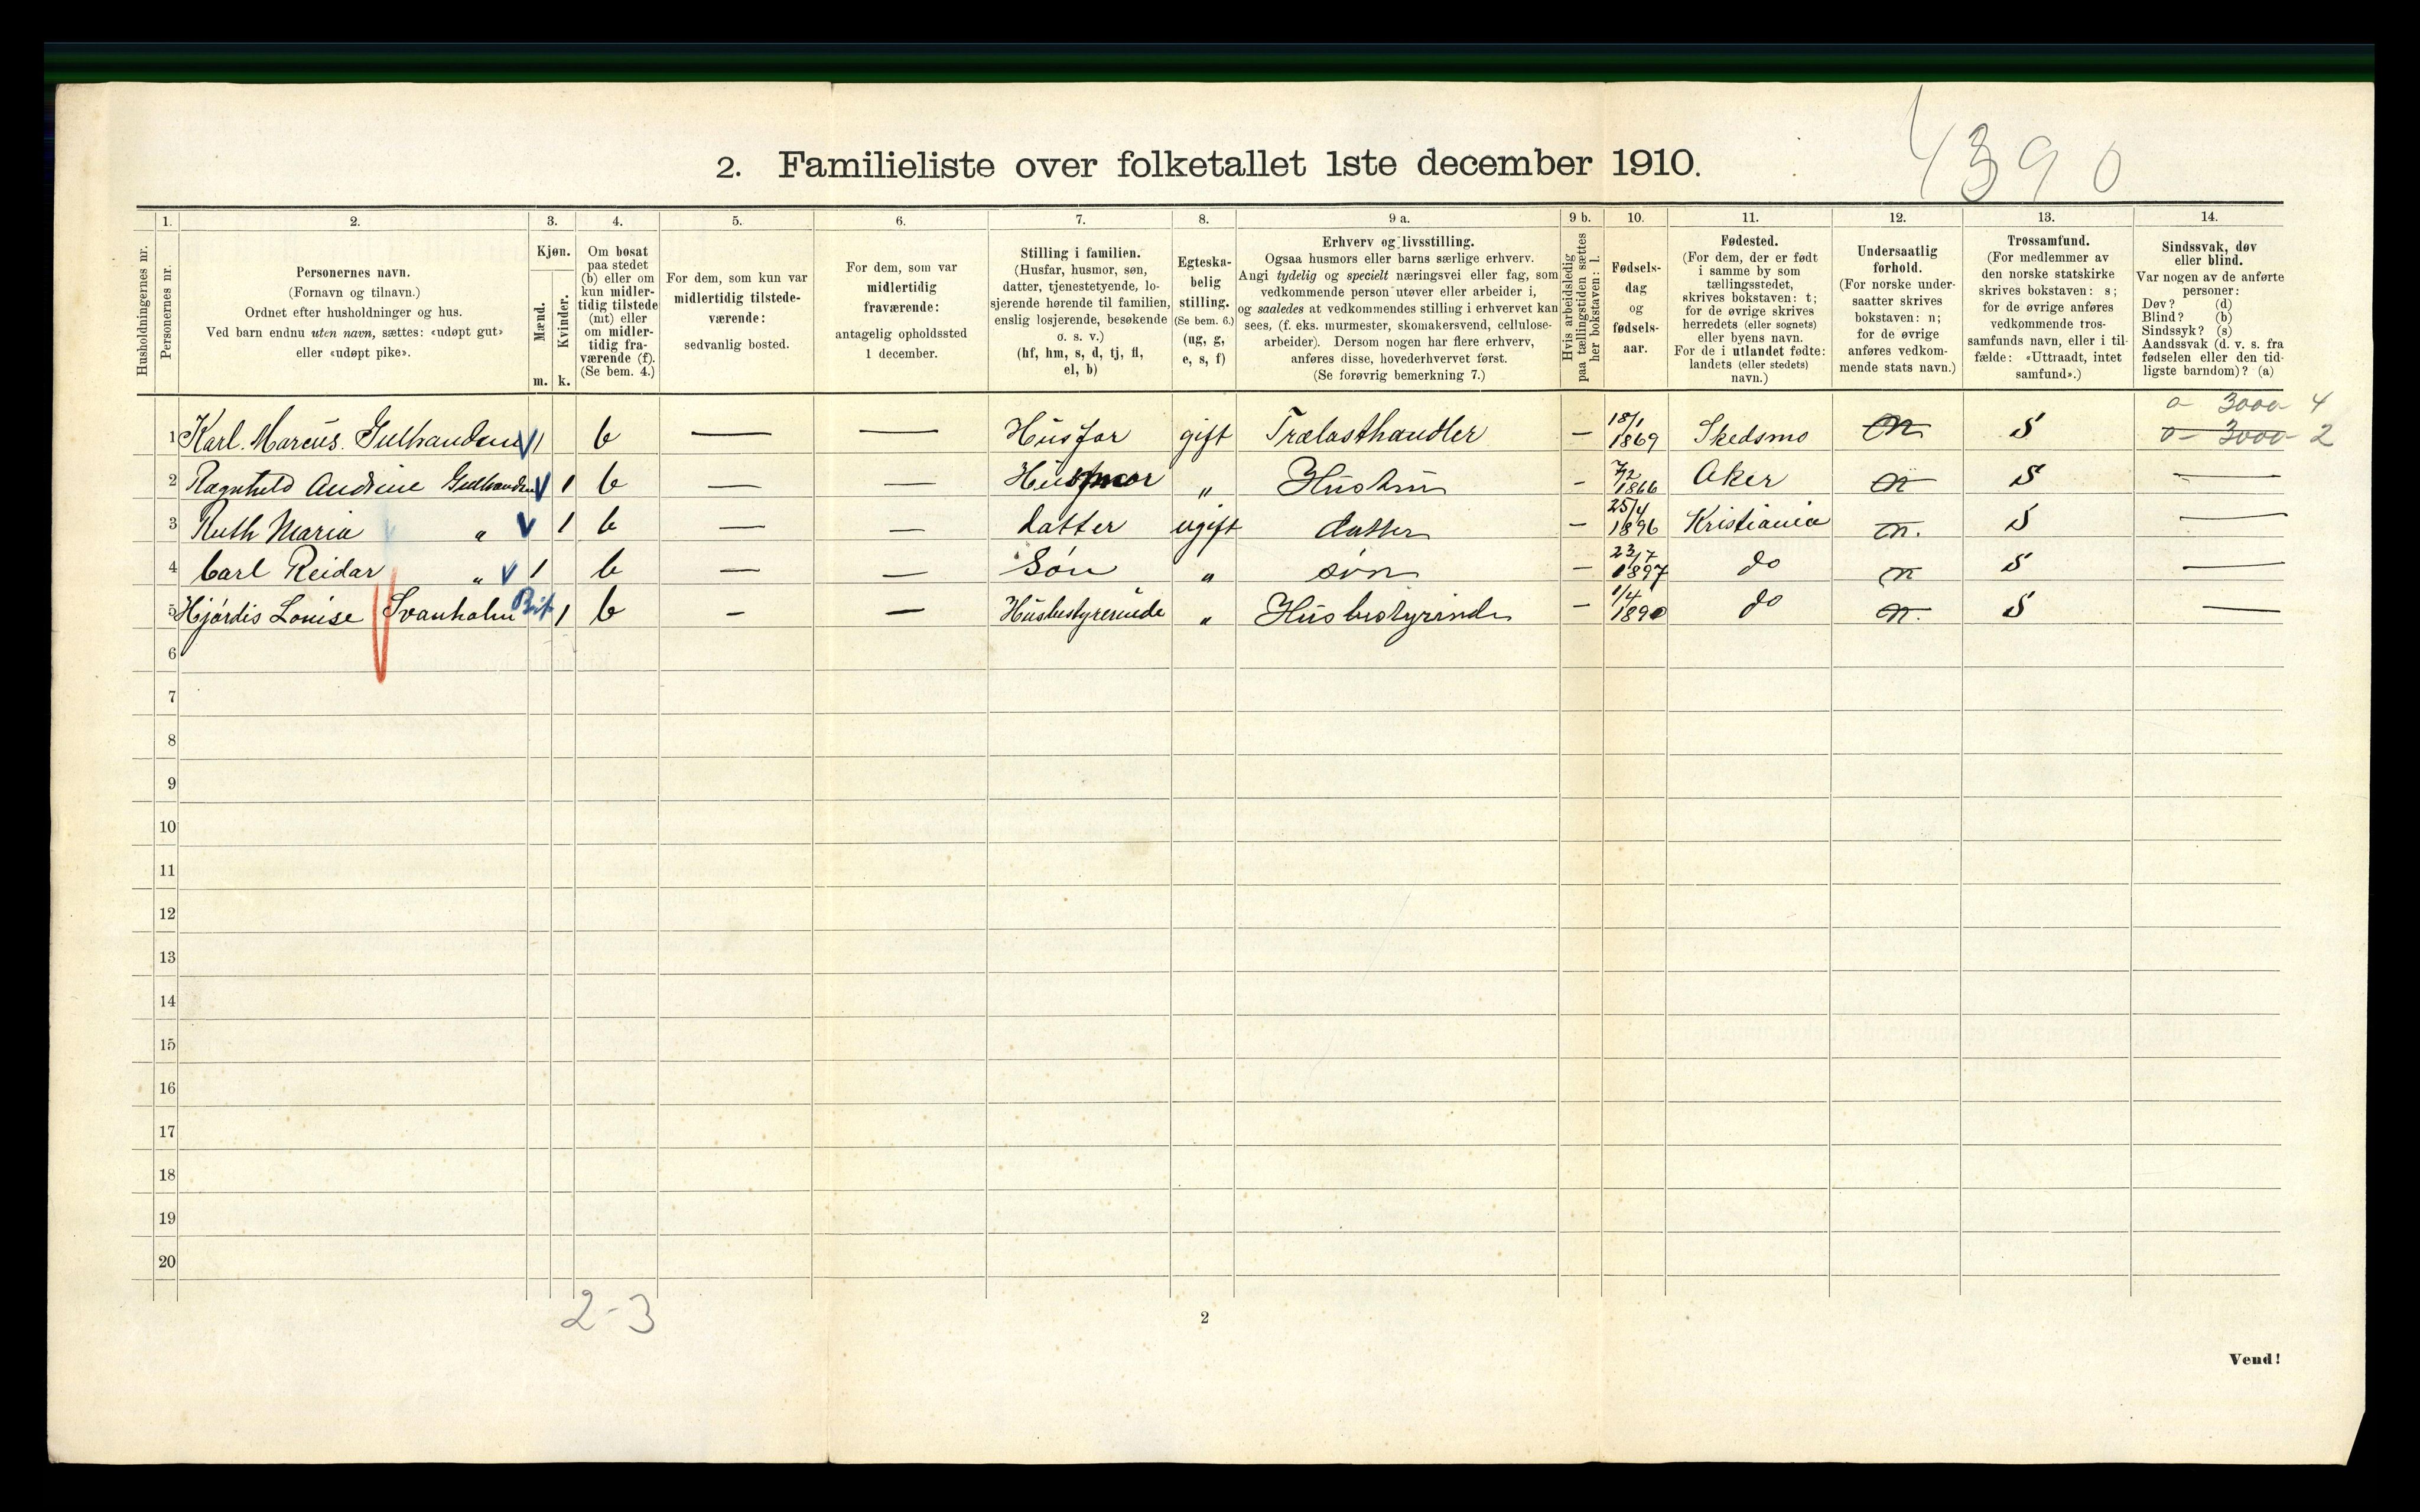 4390
2. Familieliste over folketallet 1ste december 1910.
Husholdningernes nr.
1. Personernes nr.
2. Personernes navn.
(Fornavn og tilnavn.)
Ordnet efter husholdninger og hus.
Ved barn endnu uten navn, sættes: «udøpt gut»
eller «udøpt pike».
3. Kjøn.
Mænd. m.
Kvinder. k.
4. Om bosat
paa stedet
(b) eller om
kun midler-
tidig tilstede
(mt) eller
om midler-
tidig fra-
værende (f).
(Se bem. 4.)
5. For dem, som kun var
midlertidig tilstede-
værende:
sedvanlig bosted.
6. For dem, som var
midlertidig
fraværende:
antagelig opholdssted
1 december.
7. Stilling i familien.
(Husfar, husmor, søn,
datter, tjenestetyende, lo-
sjerende hørende til familien,
enslig losjerende, besøkende
o. s. v.)
(hf, hm, s, d, tj, fl,
el, b)
8. Egteska-
belig
stilling.
(Se bem. 6.)
(ug, g,
e, s, f)
9 a. Erhverv og livsstilling.
Ogsaa husmors eller barns særlige erhverv.
Angi tydelig og specielt næringsvei eller fag, som
vedkommende person utøver eller arbeider i,
og saaledes at vedkommendes stilling i erhvervet kan
sees, (f. eks. murmester, skomakersvend, cellulose-
arbeider). Dersom nogen har flere erhverv,
anføres disse, hovederhvervet først.
(Se forøvrig bemerkning 7.)
9 b. Hvis arbeidsledig
paa tællingstiden sættes
her bokstaven: l.
10. Fødsels-
dag
og
fødsels-
aar.
11. Fødested.
(For dem, der er født
i samme by som
tællingsstedet,
skrives bokstaven: t;
for de øvrige skrives
herredets (eller sognets)
eller byens navn.
For de i utlandet fødte:
landets (eller stedets)
navn.)
12. Undersaatlig
forhold.
(For norske under-
saatter skrives
bokstaven: n;
for de øvrige
anføres vedkom-
mende stats navn.)
13. Trossamfund.
(For medlemmer av
den norske statskirke
skrives bokstaven: s;
for de øvrige anføres
vedkommende tros-
samfunds navn, eller i til-
fælde: «Uttraadt, intet
samfund».)
14. Sindssvak, døv
eller blind.
Var nogen av de anførte
personer:
Døv? (d)
Blind? (b)
Sindssyk? (s)
Aandssvak (d. v. s. fra
fødselen eller den tid-
ligste barndom)? (a)
3000 4
1 Karl. Marcus. Gulbrandsen V 1 b — — Husfar gift Trælasthandler — 18/1 1869 Skedsmo n S 3000 2
2 Ragnhild Andrine Gulbrandsen V 1 b — — Husmor " Hustru — 7/2 1866 Aker n S —
3 Ruth Maria " V 1 b — — datter ugift datter — 25/4 1896 Kristiania n. S —
4 Carl Reidar " V 1 b — — Søn " søn — 23/7 1897 do n S —
5 Hjördis Louise Svanholm 1 b — — Husbestyrerinde " Husbestyrinde — 1/4 1890 do n. S —
6
7
8
9
10
11
12
13
14
15
16
17
18
19
20
2-3
2
Vend!